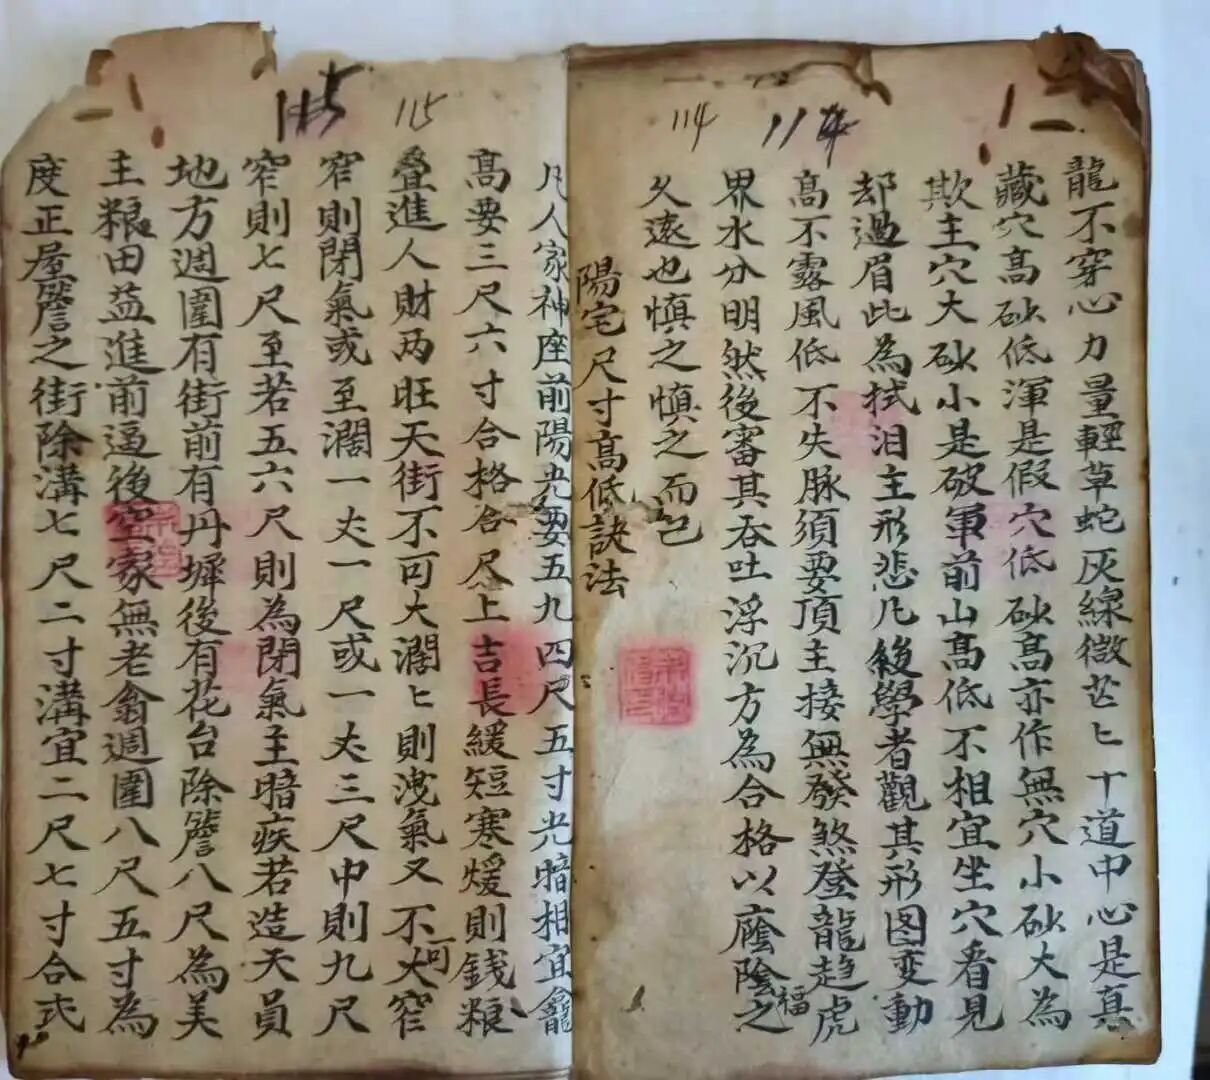 114 114
龍不穿心力量輕草蛇灰線微茫匕十道中心是真
藏穴高砂低渾是假穴低砂高亦作無穴小砂大為
欺主穴大砂小是破軍前山高低不相宜坐穴看見
却過眉此為拭泪主形悲凡後學者觀其形图变動
高不露風低不失脉須要頂主接無發煞登龍趋虎
界水分明然後審其吞吐浮沉方為合格以廕陰之福
久遠也慎之慎之而已
陽宅尺寸高低訣法
115 115
凡人家神座前陽光要五九四尺五寸光暗相宜龕
高要三尺六寸合格合尺上吉長緩短寒煖則銭粮
叠進人財两旺天街不可大濶匕則洩氣又不可大窄
窄則閉氣或至濶一丈一尺或一丈三尺中則九尺
窄則七尺至若五六尺則為閉氣主暗疾若造天員
地方週圍有街前有丹墀後有花台除簷八尺為美
主粮田益進前逼後空家無老翁週圍八尺五寸為
度正屋簷之街除溝七尺二寸溝宜二尺七寸合式